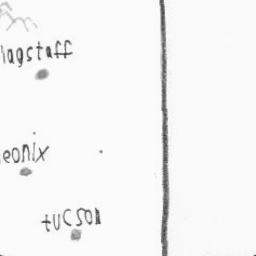 lagstaff
eonix
tucson